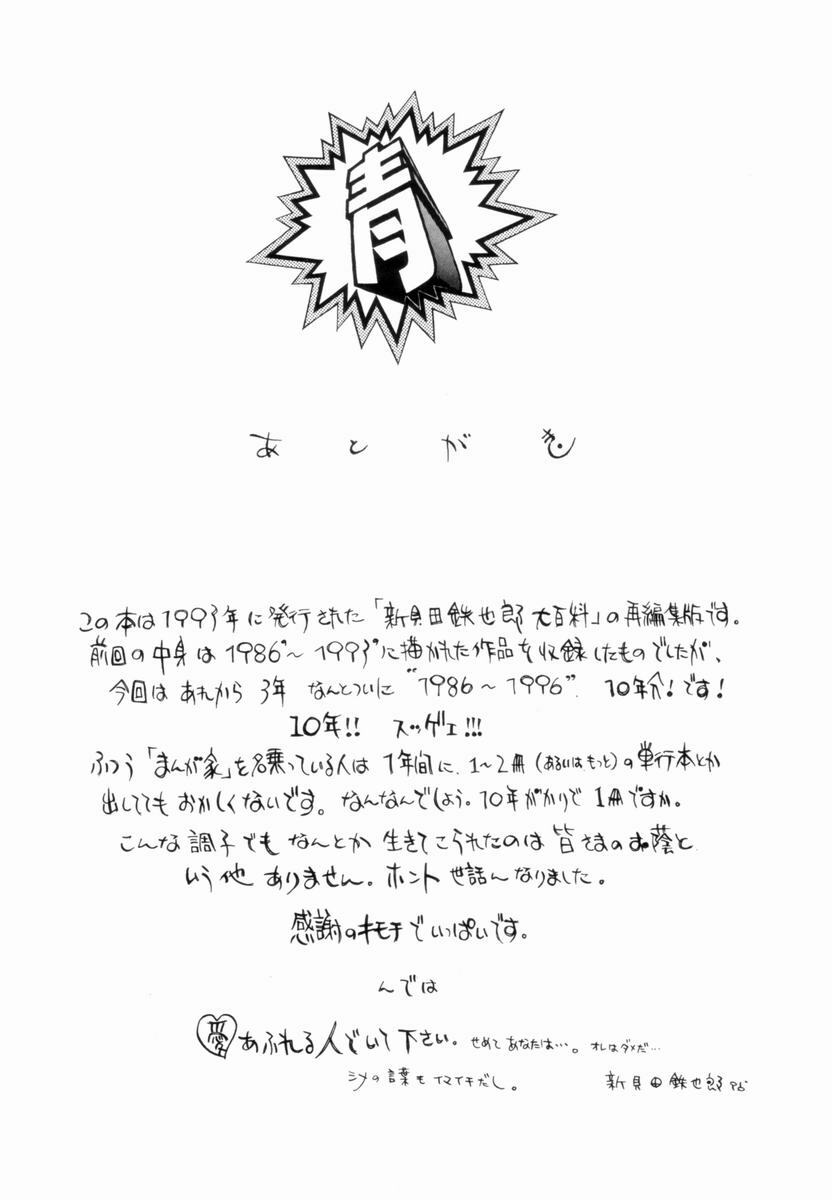 青
あとがき
この本は1993年に発行された「新貝田鉄也郎大百科」の再編集版です。
前回の中身は1986〜1993に描かれた作品を収録したものでしたが、
今回はあれから3年なんとついに"1986〜1996" 10年分!です!
10年!! スッゲェ!!!
ふつう「まんが家」を名乗っている人は1年間に、1〜2冊(あるいはもっと)の単行本とか
出しててもおかしくないです。なんなんでしょう。10年がかりで1冊ですか。
こんな調子でもなんとか生きてこられたのは皆さまのお蔭と
いう他ありません。ホント世話んなりました。
感謝のキモチでいっぱいです。
んでは
愛あふれる人でいて下さい。せめてあなたは…。オレはダメだ…
シメの言葉もイマイキだし。 新貝田鉄也郎